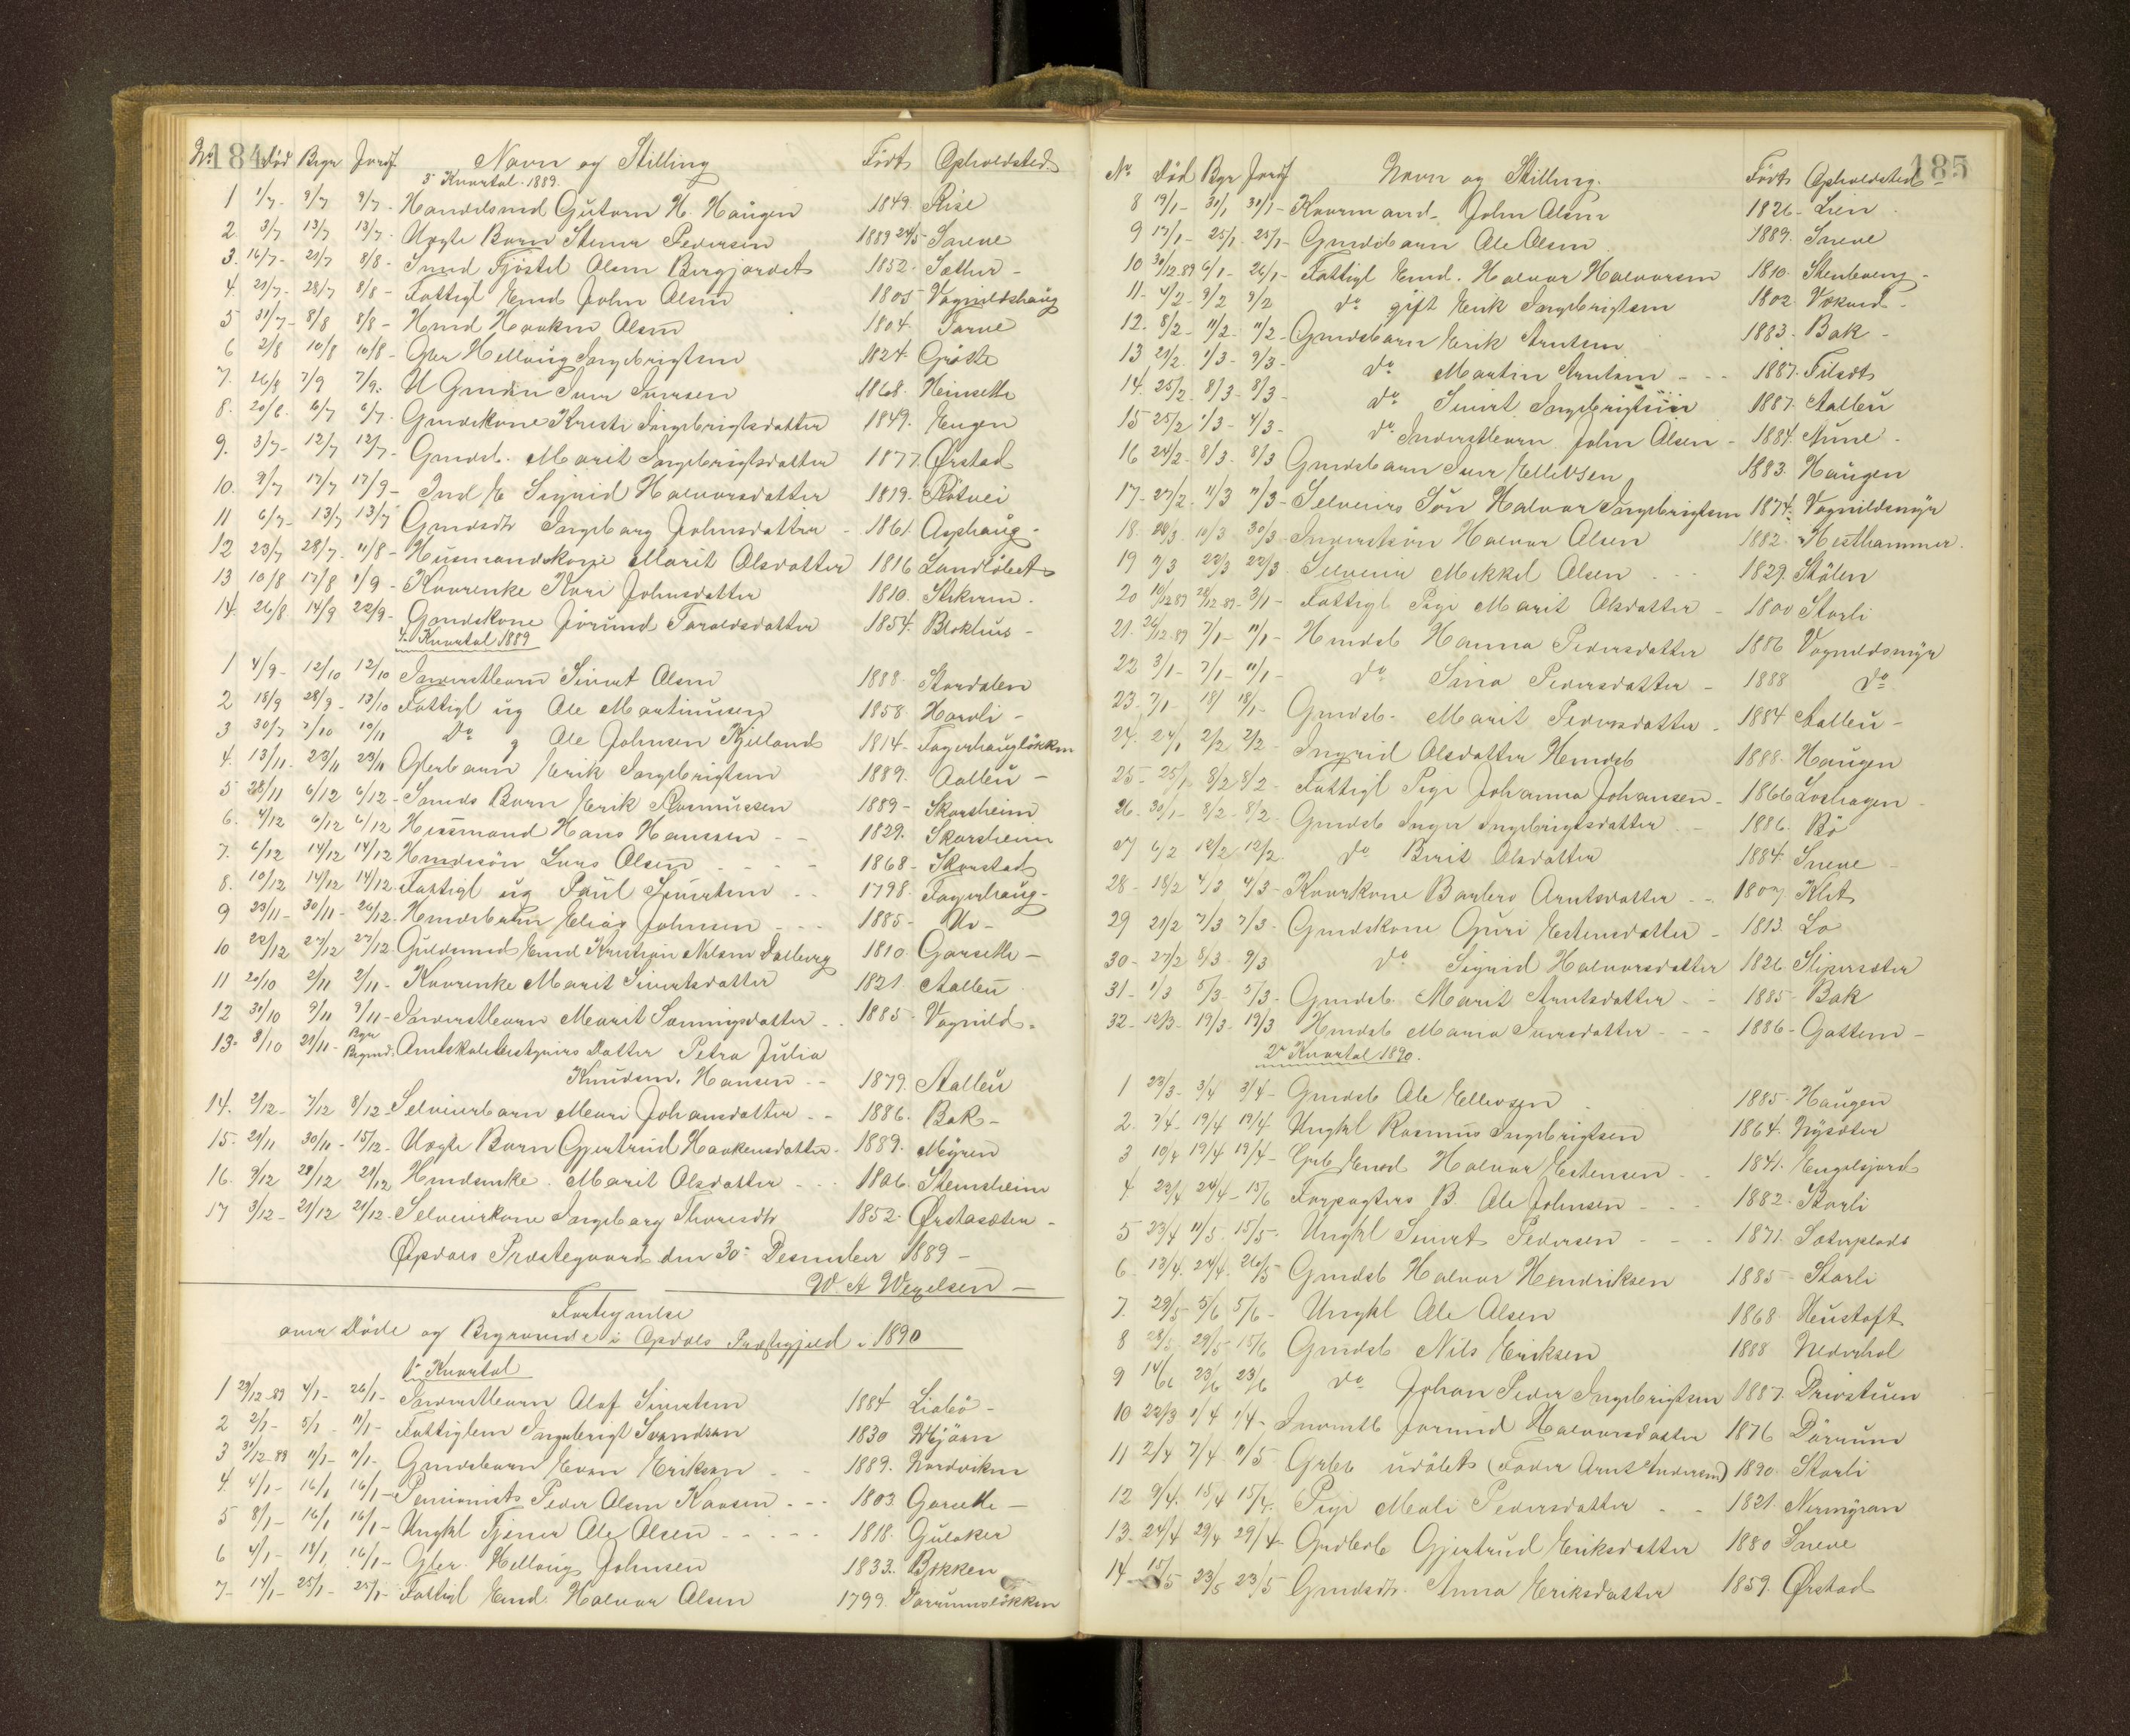 184
No Död Begr Jordf Navn og Stilling Födt Opholdsted
3 Kvartal 1889.
1 1/7 - 9/7 9/7 - Handelsmd Gutorm H. Haugen 1849. Rise
2 3/7 13/7 13/7 - Uægte Barn Steiner Pedersen 1889 24/5 Sneve
3. 16/7 - 21/7 8/8 - Smed Fjöstel Olsen Bergjordet 1852. Sæther -
4. 21/7 - 28/7 8/8 - Fattigl Emd John Olsen 1805 Vognildshaug
5 31/7 - 8/8 8/8 - Hmd Haaken Olsen 1804. Torve
6 2/8 10/8 10/8 - Gler Hellaug Ingebrigtsen 1824. Gröte
7. 26/8 7/9 7/9. U Gmdsn Iver Iversen 1868. Heimseth
8. 20/6. 6/7 6/7. Gmdskone Kristi Ingebrigtsdatter 1849. Engen
9. 3/7 - 12/7 12/7 - Gmdsb. Marit Ingebrigtsdatter 1877. Ørstad
10. 9/7 17/7 17/9 - Ind E Sigrid Halvorsdatter 1819. Rötvei
11 6/7 - 13/7 13/7 Gmdsdtr Ingeborg Johnsdatter - 1861. Aashaug -
12 23/7 28/7 - 11/8 - Husmandskone Marit Olsdatter 1816 Landlöbet
13 10/8 17/8 1/9 - Kaarenke Kari Johnsdatter 1810. Stekerm.
14. 26/8 14/9 22/9 - Gmdskone Jörund Taraldsdatter 1854. Blokhus -
4. Kvartal 1889
1 4/9 - 12/10 12/10 Inderstbarn Sivert Olsen 1888. Stordalen
2 18/9 28/9 - 13/10 Fattigl ug Ole Martinusen 1858 Hardli -
3 30/7 7/10 10/11 Do g Ole Johnsen Kjelland 1814 - Fagerhauglökken
4. 13/11 - 23/11 23/11 Glerbarn Erik Ingebrigtsen 1889. Aalbu -
5 28/11 6/12 6/12 - Smeds Barn Erik Rasmussen 1889 - Skorsheim
6. 4/12 6/12 6/12 Husmand Hans Hanssen - - 1829. Skorsheim
7. 6/12 14/12 14/12 Hmdssön Lars Olsen - - - 1868 - Skorstad
8. 10/12 14/12 14/12. Fattigl ug Paul Sivertsen - - 1798. Fagerhaug -
9 23/11 - 30/11 - 26/12. Hmdsbarn Elias Johnsen - - - 1885 - Uv -
10 22/12 27/12 27/12. Guldsmed Emd Kristian Nelsen Dalberg 1810. Gorseth -
11 20/10 2/11 2/11 - Kaarenke Marit Sivertsdatter 1821. Aalbu.
12 31/10 9/11 9/11 - Inderstbarn Marit Sæmingsdatter - - 1885 - Vognild.
13. 8/10 21/11 - Begr Bergmd. Amtskolebestyrers Datter Petra Julia
Knudsen. Hansen - - 1879. Aalbu
14. 2/12 - 7/12 8/12 - Selveierbarn Mari Johansdatter - - 1886. Bak -
15. 21/11 30/11 - 15/12 - Uægte Barn Gjertrud Haakensdatter - 1889. Myren
16. 9/12 28/12 21/12 Hmdsenke. Marit Olsdatter - - - 1806. Stensheim
17 3/12 - 21/12 21/12. Selveierkone Ingeborg Thoresdtr 1852. Ørstasæter -
Opdals Præstegaard den 30. December 1889 -
W. A. Wexelsen -
Fortegnelse
over Döde og Begravede i Opdals Præstegjeld i 1890
1e Kvartal
1 29/12-89 4/1 - 26/1 - Inderstbarn Olaf Sivertsen 1884 Liabö -
2 2/1 - 5/1 - 11/1 - Fattiglem Ingebrigt Svendsen 1830 Mjöen
3 31/12-89 11/1 - 11/1 - Gmdsbarn Even Eriksen - - 1889. Nordviken
4. 4/1 - 16/1 16/1 - Pensionist Peder Olsen Kaasen - - - 1803. Gorseth -
5 8/1 - 16/1 16/1 - Ungkl Tjener Ole Olsen - - - - - 1818. Gulaker
6 4/1 - 18/1 16/1 - Gler. Hellaug Johnsen 1833. Bjekken
7 - 14/1 - 25/1 - 25/1 - Fattigl Emd. Halvor Olsen 1799. Dørrumsløkken
185
No Död Begr Jordf Navn og Stilling. Födt Opholdsted
8 19/1 - 30/1 30/1 - Kaarmand - John Olsen 1826 - Lien
9 17/1 - 25/1 - 25/1 - Gmdsbarn Ole Olsen 1889. Sneve
10 30/12 89 6/1 - 26/1 - Fattigl Emd. Halvor Halvorsen 1810. Stenboeng -
11 - 4/2 - 9/2 9/2 do gift Erik Ingebrigtsen 1802. Vekved -
12 - 8/2 - 11/2 - 11/2 - Gmdsbarn Erik Arntsen 1883. Bak -
13 21/2. 1/3 - 9/3 - do Martin Arntsen - - - 1887. Filset
14. 25/2. 8/3 - 8/3 - do Sivert Ingebrigtsen 1887. Aalbu
15 25/2 1/3 - 4/3 - do Inderstbarn John Olsen - 1884. Aune -
16 24/2 - 8/3 - 8/3 Gmdsbarn Iver Ellevsen 1883. Haugen
17 - 27/2 - 11/3 11/3 - Selveiers Sön Halvor Ingebrigtsen 1874. Vognildsmyr
18. 28/3 10/3 30/3 - Inderstsön Halvor Olsen 1882. Hesthammer.
19 7/3 22/3 22/3 - Selveier Mikkel Olsen - - - 1829. Stölen
20 10/12 89 28/12 89 - 3/1 - Fattigl Pige Marit Olsdatter - 1800 Storli
21. 26/12 89 7/1 - 11/1 - Hmdsb Hanna Pedersdatter 1886 Vognildsmyr
22 3/1 - 7/1 - 11/1 - do Sina Pedersdatter - 1888 do
23. 7/1 - 18/1 18/1 - Gmdsb. Marit Pedersdatter - 1884 Aalbu -
24. 27/1 2/2 2/2 - Ingrid Olsdatter Hmdsb 1888. Haugen
25 - 25/1 8/2 8/2 - Fattigl Pige Johanna Johansen - 1866 Loshagen -
26 - 30/1 - 8/2 - 8/2 - Gmdsb Inger Ingebrigtsdatter - - 1886. Bö
27 6/2 12/2 12/2 do Berit Olsdatter 1884. Sneve
28 - 18/2 4/3 4/3 - Kaarkone Barbro Arntsdatter - - 1807. Klet
29 21/2 7/3 7/3 - Gmdskone Guri Estensdatter - 1813. Lo
30 - 27/2 8/3 - 9/3 do Sigrid Halvorsdatter 1826 Slipersæter
31 - 1/3 5/3 - 5/3 - Gmdsb Marit Arntsdatter - - 1885 - Bak
32 - 12/3 - 19/3 - 19/3 Hmdsb Maria Iversdatter - - - 1886 - Gottem -
2e Kvartal 1890.
1 23/3 - 3/4 3/4 - Gmdsb Ole Ellevsen 1885 - Haugen
2. 7/4 - 19/4 19/4 Ungkl Rasmus Ingebrigtsen 1864. Nysæter
3 10/4 19/4 19/4 - Grb Emd Halvor Estensen - - 1841. Engelsjord
4 23/4 24/4 - 15/6 Forpagters B. Ole Johnsen - - - 1882. Storli
5 23/4 11/5. 15/5 - Ungkl Sivert Pedersen - - - 1871. Sæterplads
6 - 13/4. 24/4. 26/5 - Gmdsb Halvor Hendriksen 1885 - Storli
7. 29/5 - 5/6 5/6 - Ungkl Ole Olsen 1868 Heustoft
8 28/5 - 29/5 - 15/6 Gmdsb Nils Eriksen 1888 Nedrehol
9 14/6 23/6 23/6 do Johan Peder Ingebrigtsen 1887. Drivstuen
10 22/3 1/4 1/4 - Inderstb Jorund Halvorsdatter 1876 Dörrum
11 2/4 7/4 11/5 Grbb udöbt (Fader Arnt Andersen) 1890. Storli
12 9/4. 15/4 15/4. Pige Marli Pedersdatter - - 1821. Nermyran
13. 24/4 29/4 29/4 - Grdbrb Gjertrud Eriksdatter 1880 Sneve
14 - 15/5 23/5 23/5 Gmdsdr. Anna Eriksdatter 1859. Ørstad